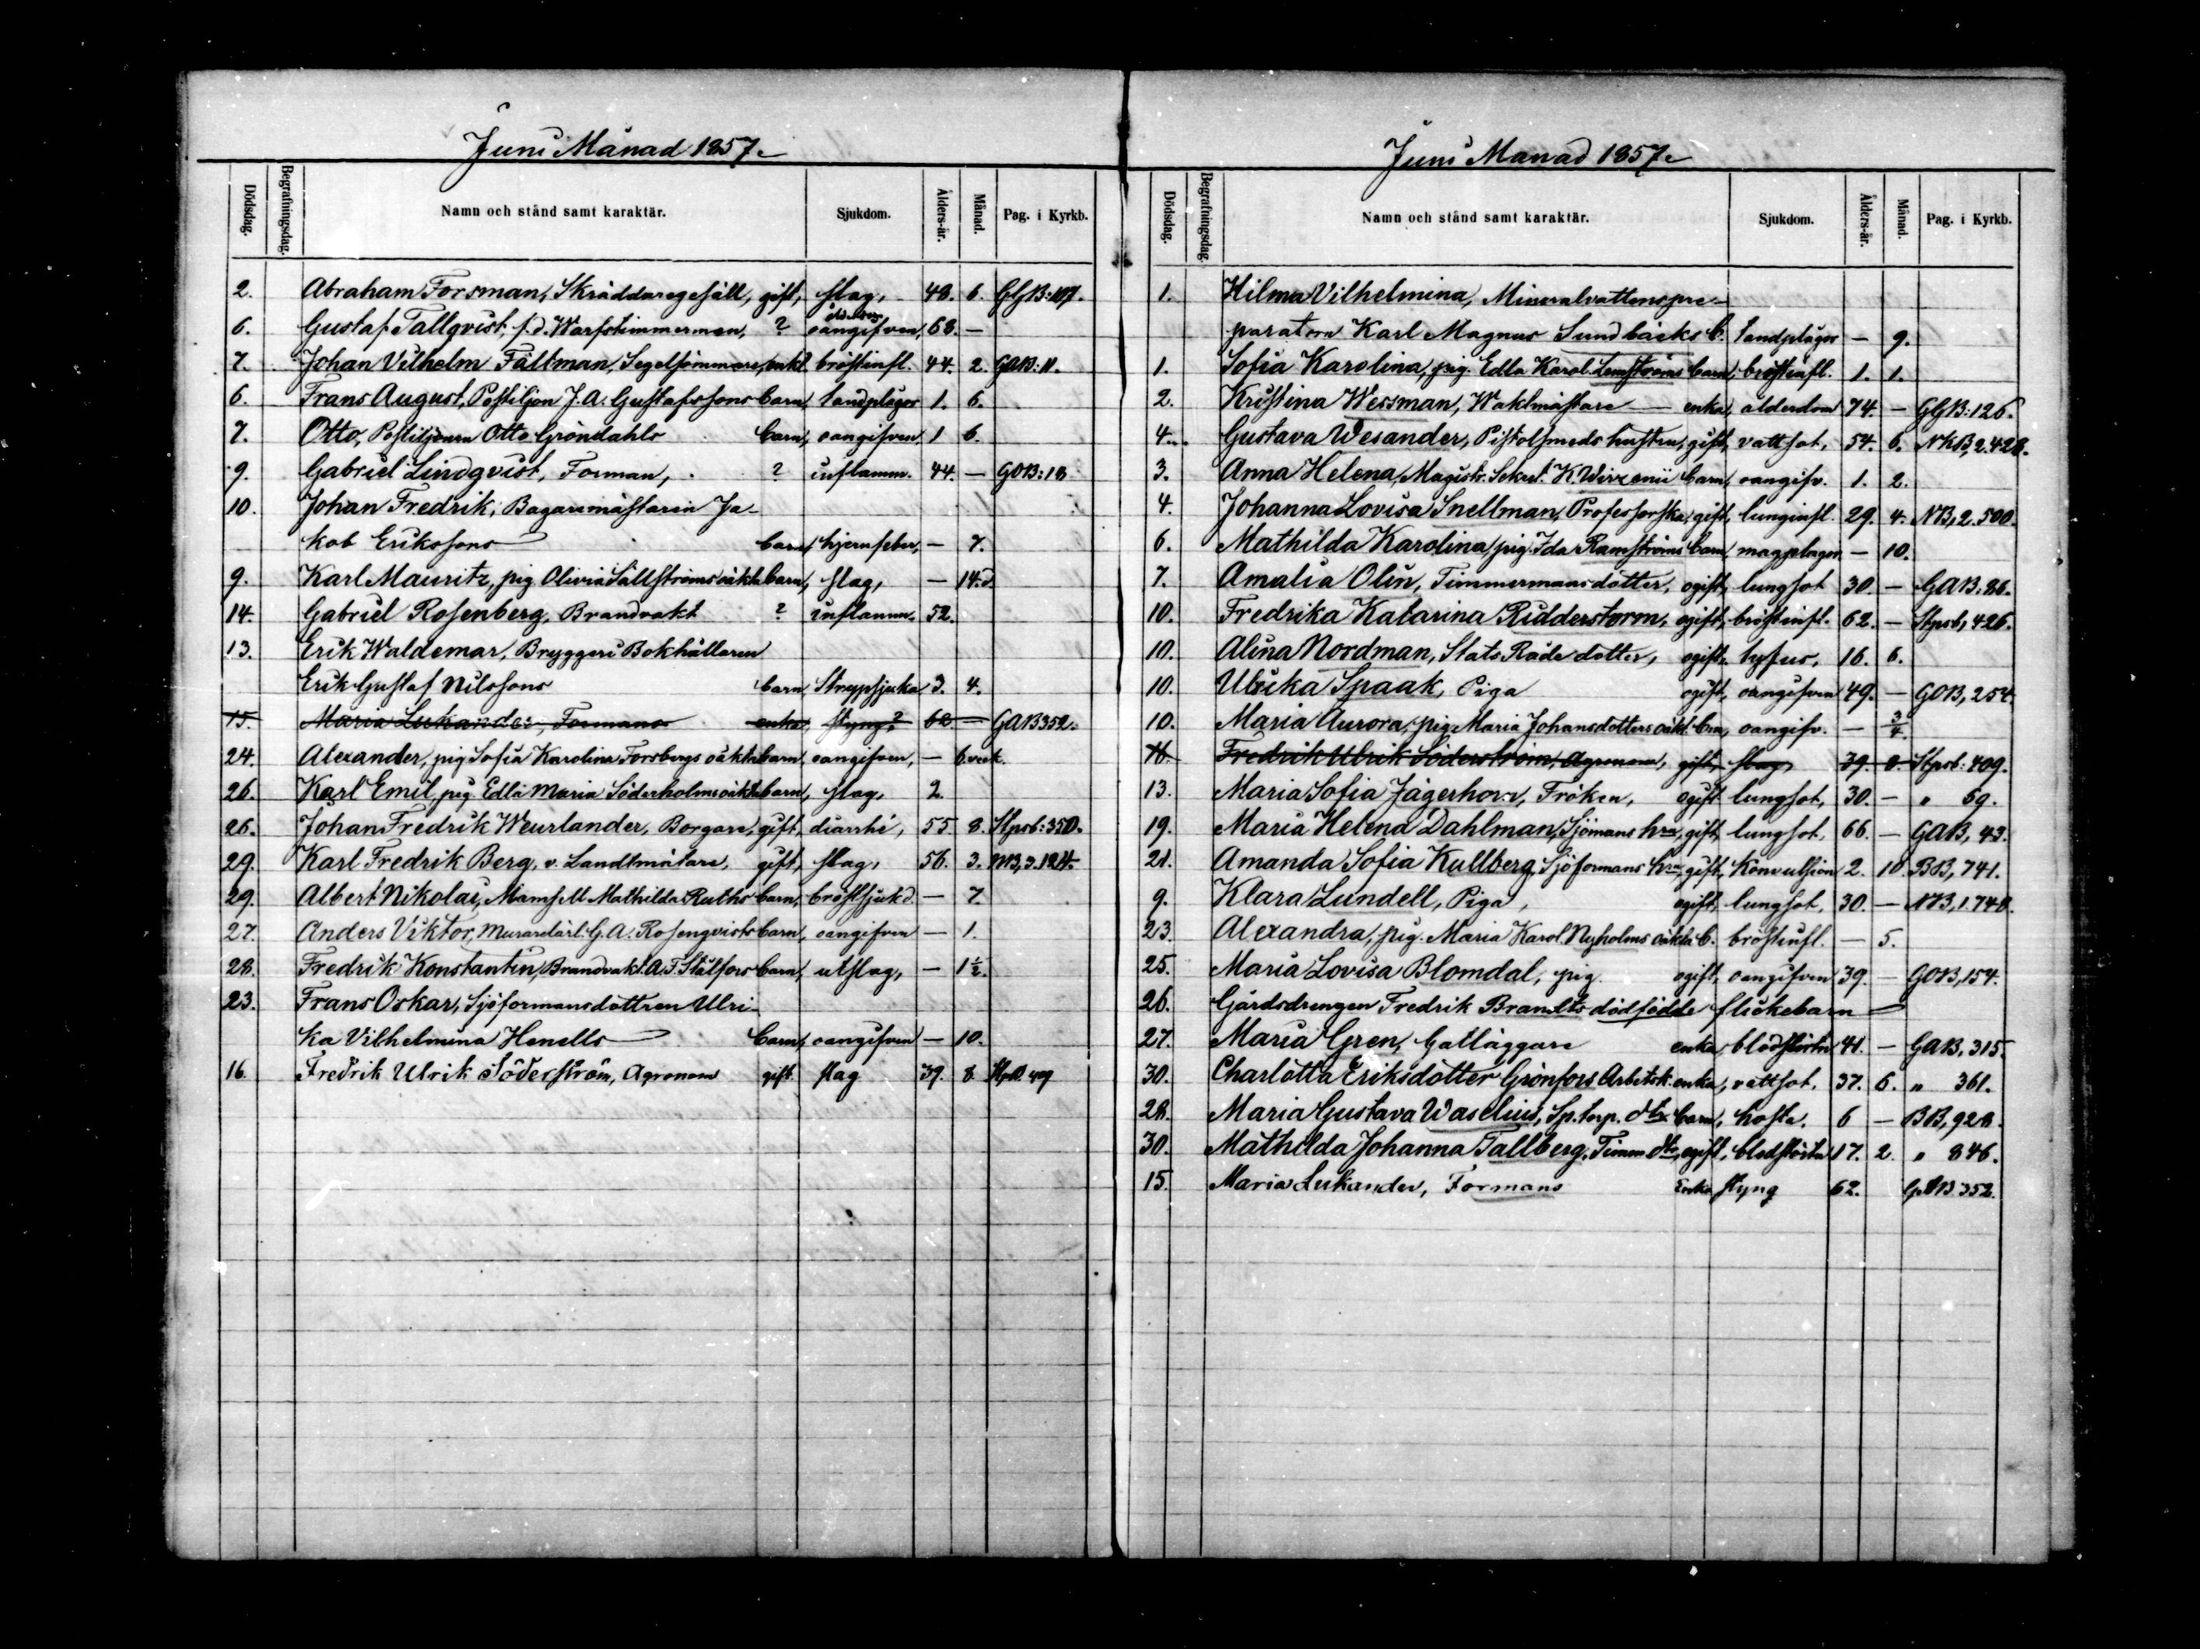 Juni Månad 1857.
Dödsdag. Begrafningsdag. Namn och stånd samt karaktär. Sjukdom. Ålders-år. Månad. Pag. i Kyrkb.
2. Abraham Forsman, Skräddaregesäll, gift, slag, 48. 6. GGB:107.
6. Gustaf Tallqvist, f.d. Warfstimmerman, ? oangifven, 68. —
7. Johan Vilhelm Fältman, Segelsömmare, enkl. bröstinfl. 44. 2. GAB: 11.
6. Frans August, Postiljon J. A. Gustafssons barn, landplågor 1. 6.
7. Otto, Postiljonen Otto Gröndahls barn, oangifven 1 6.
9. Gabriel Lindqvist, Forman, ? inflamm. 44. — GOB: 18
10. Johan Fredrik, Bagaremästaren Ja-
kob Erikssons barn, hjernfeber, — 7.
9. Karl Mauritz, pig. Olivia Sällströms oäkta barn, slag, — 14.d.
14. Gabriel Rosenberg, Brandvakt ? inflamm. 52.
13. Erik Waldemar, Bryggeri Bokhållaren
Erik Gustaf Nilssons barn Strypsjuka 3. 4.
15. Maria Lukander, Formans enka, styng? 62 — GAB 352.
24. Alexander, pig Sofia Karolina Forsbergs oäkta barn, oangifven, — 6 veck.
26. Karl Emil, pig Edla Maria Söderholms oäkta barn, slag, 2.
26. Johan Fredrik Weurlander, Borgare, gift, diarrhé, 55. 8. Stpsb: 350.
29. Karl Fredrik Berg, v. Landtmätare, gift, slag, 56. 3. NB, 3.124.
29. Albert Nikolai, Mamsell Mathilda Ruths barn, bröstsjukd. — 7.
27. Anders Viktor, Murarelärl. G. A. Rosenqvists barn, oangifven — 1.
28. Fredrik Konstantin, Brandvakt. A. F. Stålfors barn, utslag, — 1½.
23. Frans Oskar, Sjöformansdottren Ulri-
ka Vilhelmina Henells barn, oangifven — 10.
16. Fredrik Ulrik Söderström, Agronom gift. slag 39. 8. StpsB 409
Juni Månad 1857.
Dödsdag. Begrafningsdag. Namn och stånd samt karaktär. Sjukdom. Ålders-år. Månad. Pag. i Kyrkb.
1. Hilma Vilhelmina, Mineralvattenspre-
paratorn Karl Magnus Sundbäcks b. landplågor — 9.
1. Sofia Karolina, pig. Edla Karol. Lemströms barn, bröstinfl. 1. 1.
2. Kristina Wessman, Waktmästare — enka, ålderdom 74. — GGB: 126.
4. Gustava Wesander, Pistolsmeds hustru, gift, vattsot, 54. 6. NKB, 2.428.
3. Anna Helena, Magistr. Sekret. K. Wirzenii barn, oangifv. 1. 2.
4. Johanna Lovisa Snellman, Professorska, gift, lunginfl. 29. 4. NB, 2.500.
6. Mathilda Karolina, pig. Ida Ramströms barn, magplågor — 10.
7. Amalia Olin, Timmermansdotter, ogift, lungsot 30. — GAB: 86.
10. Fredrika Katarina Ridderstorm, ogift, bröstinfl. 62. — Stpsb, 426.
10. Alina Nordman, Stats Råds dotter, ogift, tyfus, 16. 6.
10. Ulrika Spaak, Piga ogift, oangifven 49. — GOB, 254.
10. Maria Aurora, pig. Maria Johansdotters oäkt. brn, oangifv. — 3/4.
16. Fredrik Ulrik Söderström, Agronom, gift, slag, 39. 8. Stpsb: 409.
13. Maria Sofia Jägerhorn, Fröken, ogift lungsot, 30. — „ 69.
19. Maria Helena Dahlman, Sjömans hru, gift, lungsot, 66. — GAB, 43.
21. Amanda Sofia Kullberg, Sjöformans hru, gift, konvulsion 2. 10. BB, 741.
9. Klara Lundell, Piga, ogift, lungsot, 30. — NB, 1.748.
23. Alexandra, pig. Maria Karol. Nyholms oäkta b. bröstinfl. — 5.
25. Maria Lovisa Blomdal, pig. ogift, oangifven 39. — GOB, 154.
26. Gårdsdrengen Fredrik Brandts dödfödde flickebarn —
27. Maria Gren, Gatläggare enka, blodstörtn 41. — GAB, 315.
30. Charlotta Eriksdotter Grönfors Arbetsk. enka, vattsot, 37. 6. „ 361.
28. Maria Gustava Waselius, Sp. torp. dtr barn, hosta. 6 — BB, 928.
30. Mathilda Johanna Tallberg, Timm. dtr, ogift, blodstörtn 17. 2. „ 846.
15. Maria Lukander, Formans Enka styng 62. GAB 352.